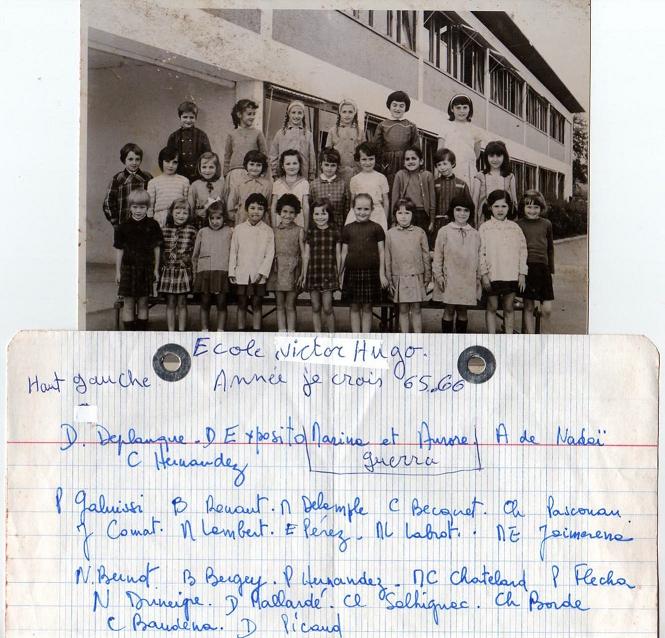 Ecole Victor Hugo.
Haut gauche Année je crois 65.66
D. Deplanque. D Exposito Marina et Aurore A de Nadaï
C Hernandez guerra
P Galuissi B Renaut. M Delemple C Becquet. Ch Pasconau.
J Comat. M Lambert. E Pérez. ML Labrot. ME
N. Beunot. B Bergey. P Hernandez. MC Chateland P Flecha
N D Mallardé. Cl Solhignac. Ch Borde
C Baudena. D Picaud